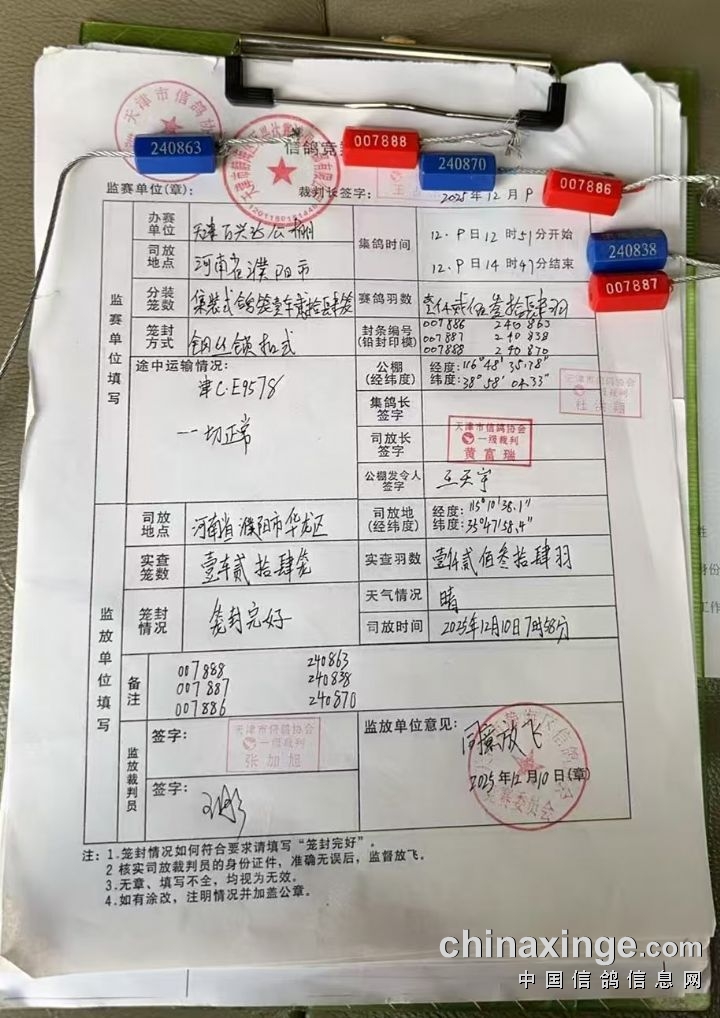 天津市信鸽协
240863
007888
240870
007886
240838
007887
信鸽竞
监赛单位(章): 裁判长签字: 2025年12月9
监赛单位填写
办赛单位 天津百兴达公棚
集鸽时间 12.9日12时51分开始
12.9日14时47分结束
司放地点 河南省濮阳市
分装笼数 集装式鸽笼壹车贰拾肆笼
赛鸽羽数 壹仟贰佰叁拾肆羽
笼封方式 钢丝锁扣式
封条编号(铅封印模)
007886 240863
007887 240838
007888 240870
途中运输情况:
津C·E9578
一切正常
公棚(经纬度) 经度:116°48′35.78″
纬度:38°58′04.33″
集鸽长签字
天津市信鸽协会
一级裁判
司放长签字
天津市信鸽协会
一级裁判
黄富瑞
公棚发令人签字 王天宇
监放单位填写
司放地点 河南省濮阳市华龙区
司放地(经纬度) 经度:115°10′38.1″
纬度:35°47′58.4″
实查笼数 壹车贰拾肆笼
实查羽数 壹仟贰佰叁拾肆羽
笼封情况 笼封完好
天气情况 晴
司放时间 2025年12月10日7时58分
备注
007888 240863
007887 240838
007886 240870
监放裁判员
签字:
天津市信鸽协会
一级裁判
张加旭
签字:
监放单位意见:
同意放飞
2025年12月10日(章)
竞赛委员会
注: 1.笼封情况如何符合要求请填写“笼封完好”。
2 核实司放裁判员的身份证件，准确无误后，监督放飞。
3.无章、填写不全，均视为无效。
4.如有涂改，注明情况并加盖公章。
chinaxinge.com
中国信鸽信息网